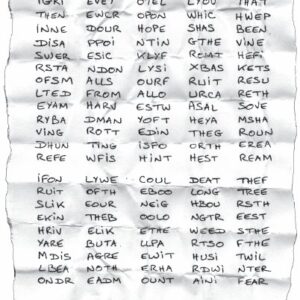 IGRI EVET OTEL LYOU THAT
THEN EWCR OPON WHIC HWEP
INNE DOUR HOPE SHAS BEEN
DISA PPOI NTIN GTHE VINE
SWER ESIC KLYF ROMT HEFI
RSTA NDON LYSI XBAS KETS
OFSM ALLS OURF RUIT RESU
LTED FROM ALLO URCA RETH
EYAM HARV ESTW ASAL SOVE
RYBA DMAN YOFT HEYA MSHA
VING ROTT EDIN THEG ROUN
DHUN TING ISPO ORTH EREA
REFE WFIS HINT HEST REAM

IFON LYWE COUL DEAT THEF
RUIT OFTH EBOO LONG TREE
SLIK EOUR NEIG HBOU RSTH
EKIN THEB OOLO NGTR EEST
HRIV ELIK ETHE WEED STHE
YARE BUTA LLPA RTSO FTHE
MDIS AGRE EWIT HUSI TWIL
LBEA NOTH ERHA RDWI NTER
ONDR EADM OUNT AINI FEAR